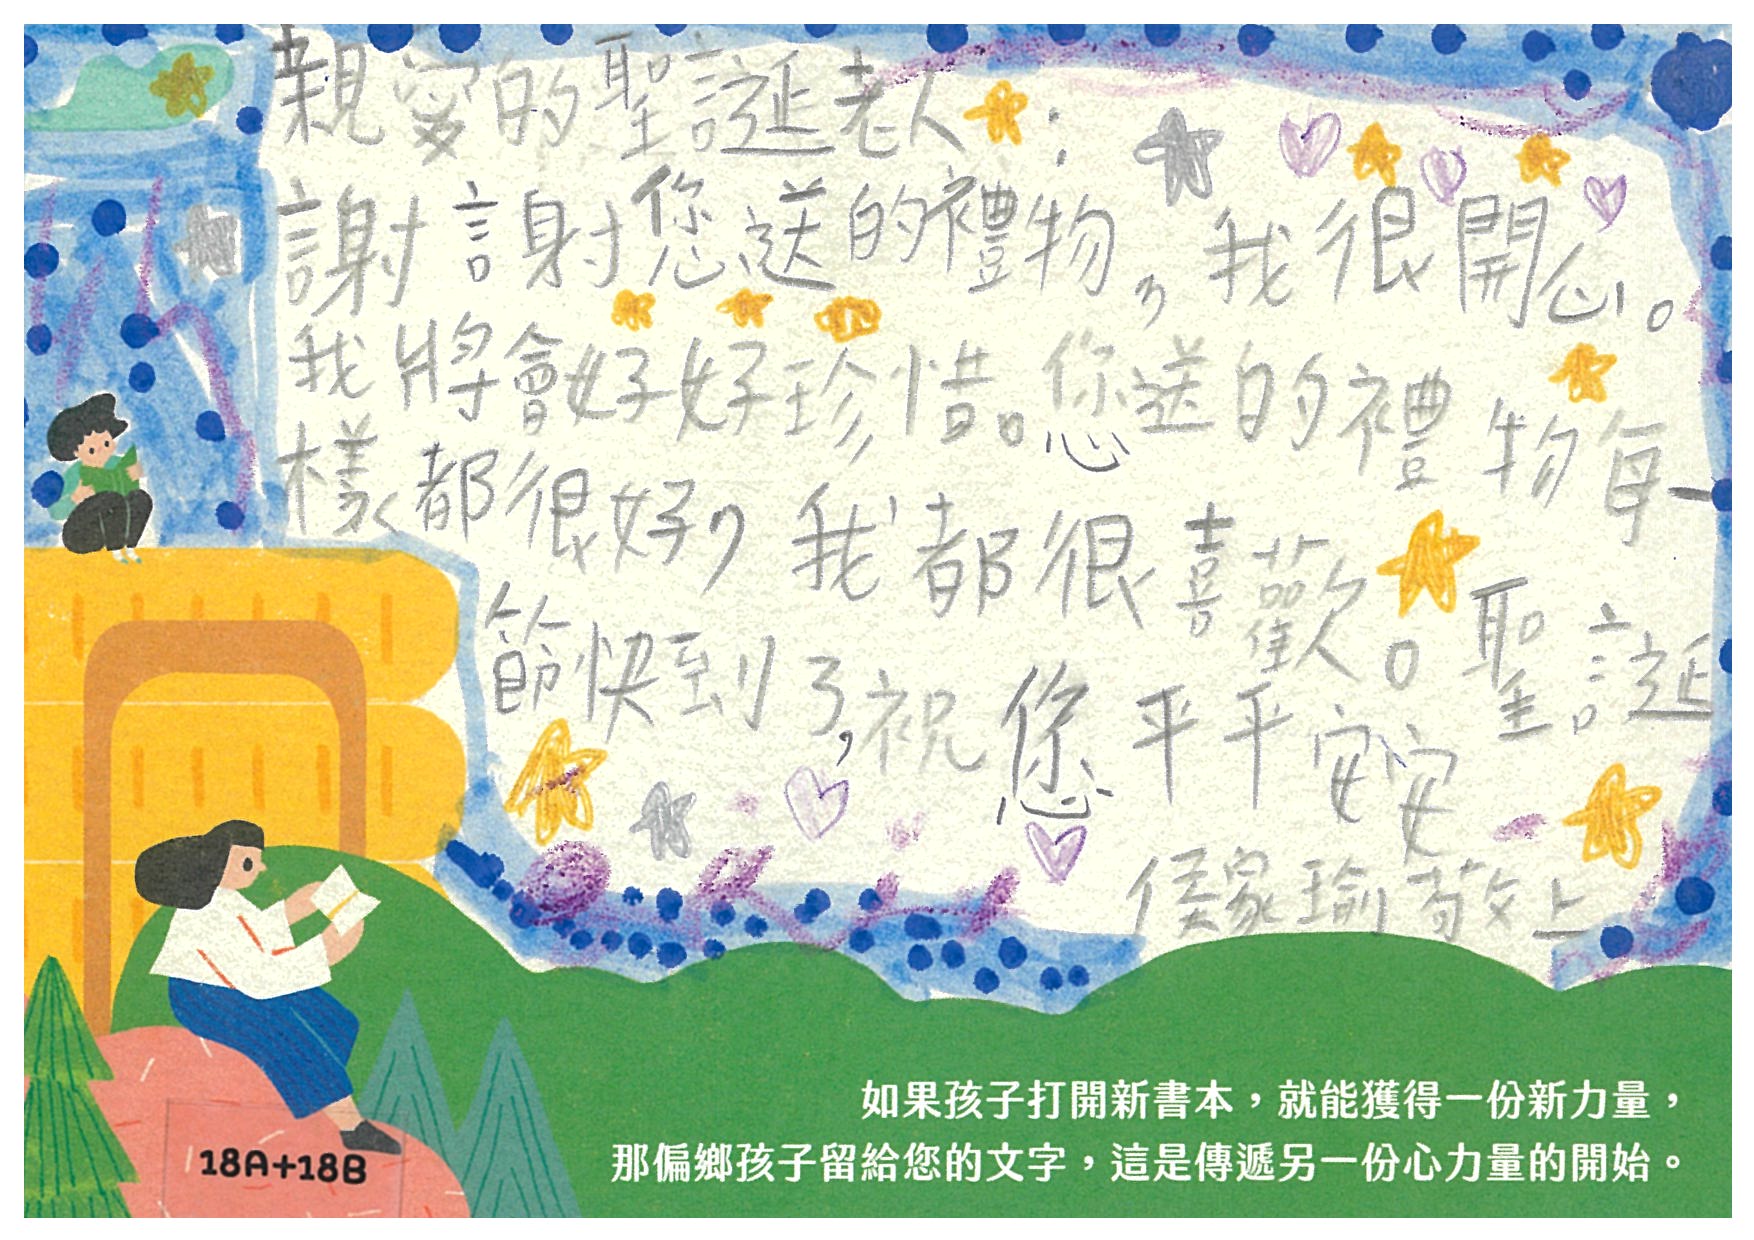 親愛的聖誕老人：
謝謝您送的禮物，我很開心。
我將會好好珍惜。您送的禮物每一
樣都很好，我都很喜歡。聖誕
節快到了，祝您平平安安
侯家瑜敬上
如果孩子打開新書本，就能獲得一份新力量，
那偏鄉孩子留給您的文字，這是傳遞另一份心力量的開始。
18A+18B